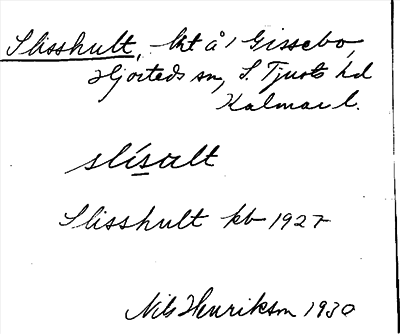 Slisshult, lht å / Gissebo,
Hjorteds sn, S. Tjusts hd
Kalmar l.
slísalt
Slisshult kb 1927
Nils Henrikson 1930